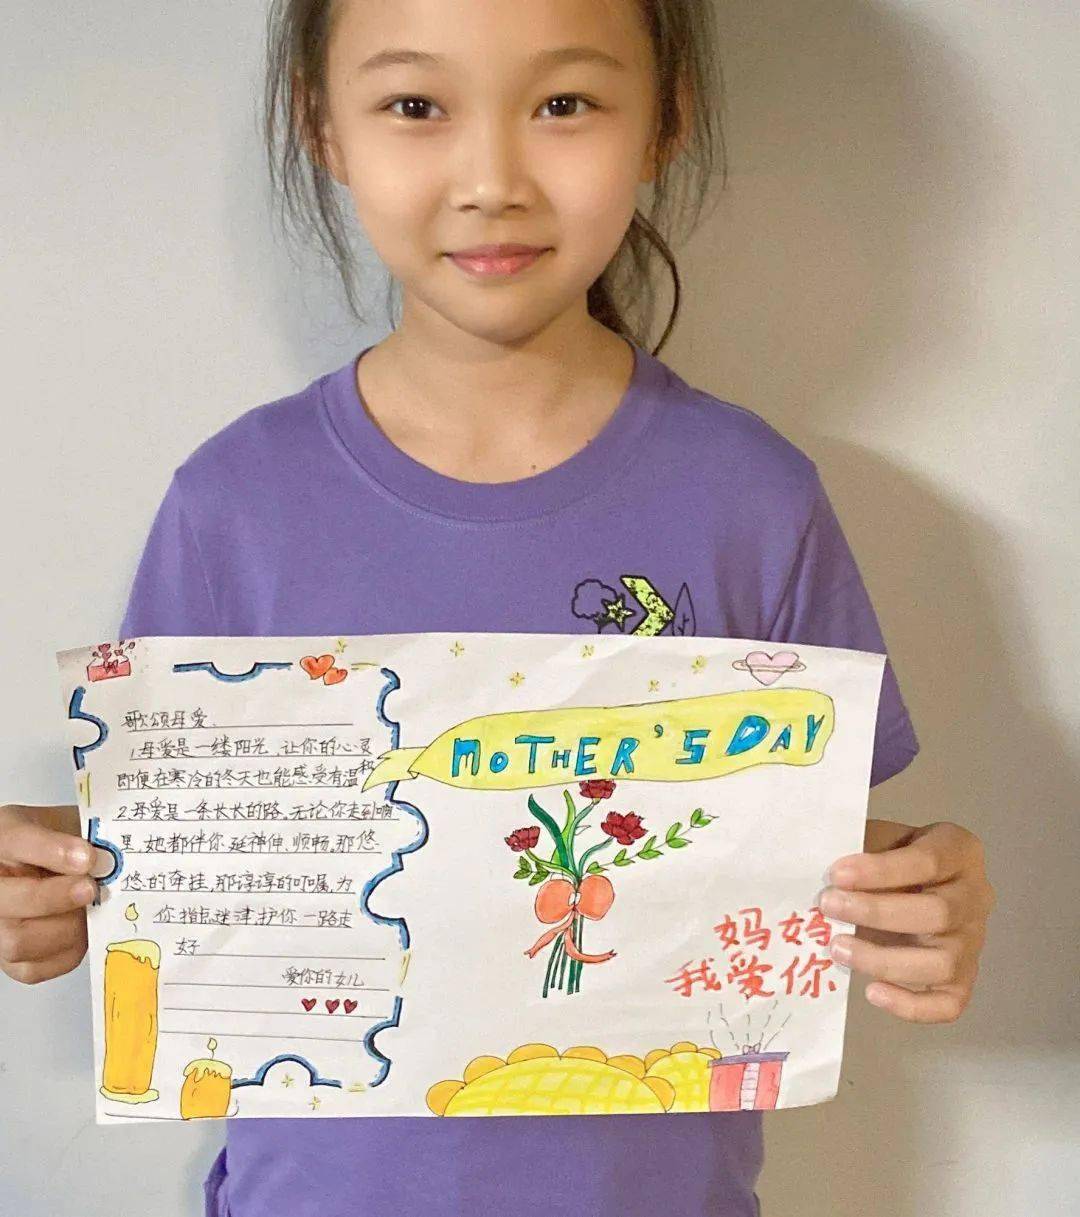 歌颂母爱
1.母爱是一缕阳光,让你的心灵
即便在寒冷的冬天也能感受有温和
2.母爱是一条长长的路,无论你走到哪
里,她都伴你延神伸、顺畅。那悠
悠的牵挂,那谆谆的叮嘱,为
你指点迷津,护你一路走
好
爱你的女儿
MOTHER'S DAY
妈妈
我爱你